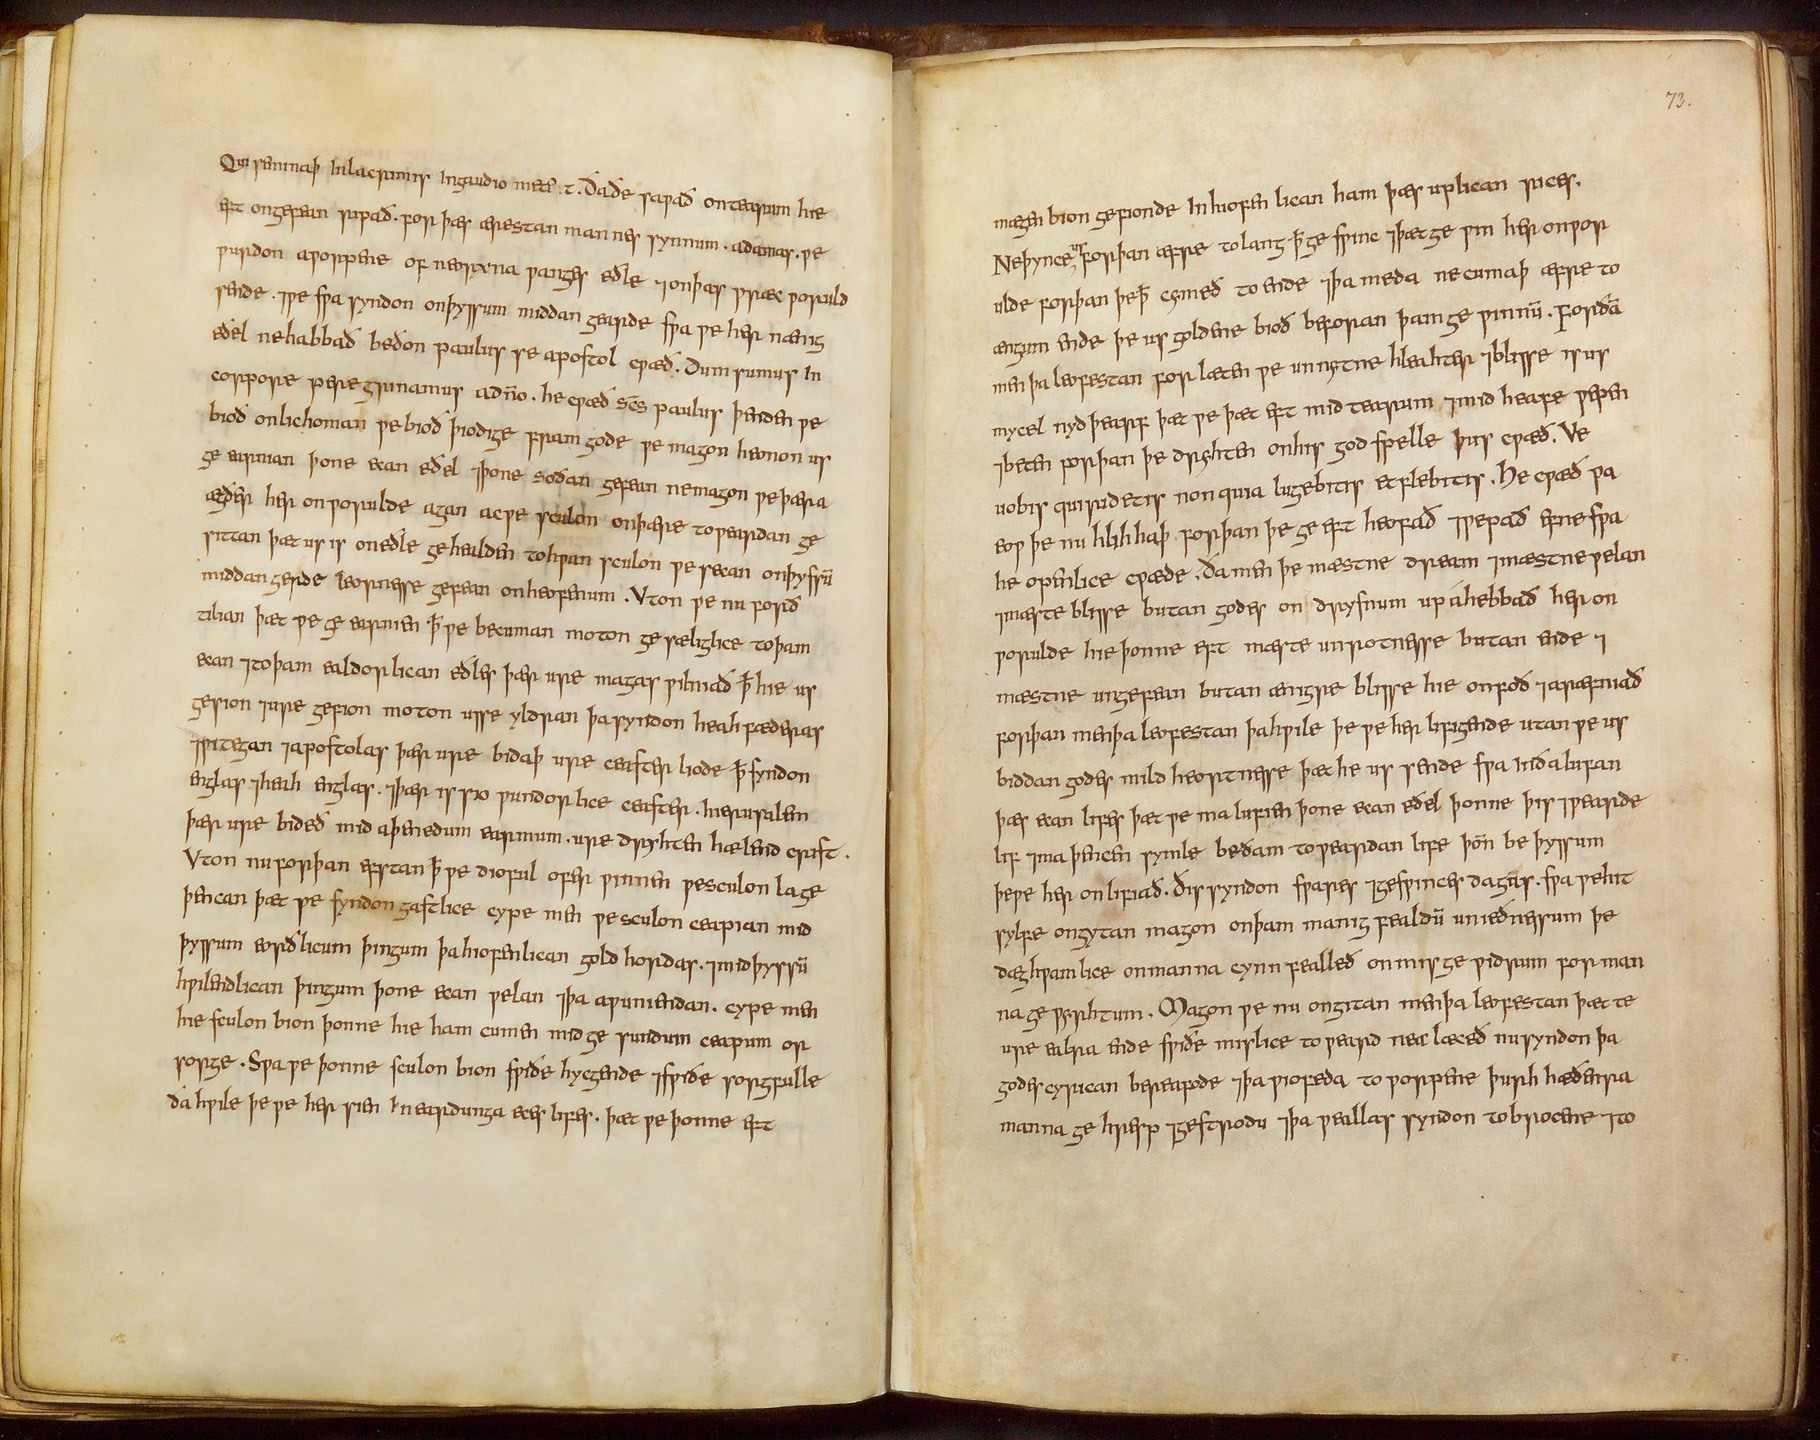 Qui seminaþ Inlacrimis Ingaudio met̄ ⁊ . Ða ðe sapað onteaꞃum hie
eft ongefean ripað . for þæs ærestan mannes synnum . adames . ƿe
ƿurdon aworpene of neorxna ƿanges eðle ⁊onþas ƿræc ƿoruld
sende . ⁊ƿe sƿa syndon onþyssum middan gearde sƿa ƿe her nænig
eðel nehabbað beðon paulus se apostol cƿæð . Dum sumus In
corpore peregrinamus adn̄o . he cƿæð sc̄s paulus þenden ƿe
bioð onlichoman ƿebioð þiodige fram gode ƿe magon heonon us
ge earnian þone ecan eðel ⁊þone soðan gefean nemagon ƿe þæra
ægðer her onƿorulde agan ac ƿe sculon onþære toƿeardan ge
sittan þæt us is oneðle gehealden tohƿan sculon ƿe secan onþyssū
middan gerde leornesse gefean onheofenum . Vton ƿe nu forð
tilian þæt ƿe ge earnien ꝥ ƿe becuman moton ge sæliglice toþam
ecan ⁊toþam ealdorlican eðles þær ure magas ƿilniað ꝥ hie us
gesion ⁊ure gefion moton usse yldran þa syndon heahfæderas
⁊ƿitegan ⁊apostolas þær ure bidaþ ure ceaster liode ꝥ syndon
englas ⁊heah englas . ⁊þær is sio ƿundorlice ceaster . hierusalem
þær ure bideð mid aþenedum earmum . ure dryhten hælend crist .
Vton nu forþan efstan ꝥ ƿe dioful ofer ƿinnen ƿesculon lage
þencan þæt ƿe syndon gastlice cype men ƿe sculon ceapian mid
þyssum eorðlicum þingum þa hiofenlican gold hordas . ⁊midþyssū
hƿilendlican þingum þone ecan ƿelan ⁊þa aƿuniendan . cype men
hie sculon bion þonne hie ham cumen mid ge sundum ceapum or
sorge . Sƿa ƿe þonne sculon bion sƿiðe hycgende ⁊sƿiðe sorgfulle
ða hƿile þe ƿe her sien In eardunga eces lifes . þæt ƿe þonne eft
73.
mægen bion gefionde Inhiofen lican ham þæs uplican rices .
Neþynce us forþan æfre to lang ꝥ ge sƿinc ⁊þæt ge ƿin her onƿor
ulde forþan þeꝥ cymeð to ende ⁊þa meda ne cumaþ æfre to
ængum ende þe us goldene bioð beforan þamge ƿinnū . Forðā
men þa leofestan forlæten ƿe unnytne hleahter ⁊blisse is us
mycel nydþearf þæt ƿe þæt eft mid tearum ⁊mid heafe ƿepen
⁊beten forþan þe dryhten onhis godspelle þus cƿæð . Ve
uobis qui ridetis nonquia lugebitis et flebitis . He cƿæð ƿa
eoƿ þe nu hlihhaþ forþan þe ge eft heofað ⁊ƿepað efne sƿa
he openlice cƿæde . Ða men þe mæstne dream ⁊mæstne ƿelan
⁊mæste blisse butan godes on drysnum up ahebbað her on
ƿorulde hie þonne eft mæste unrotnesse butan ende ⁊
mæstne ungefean butan ænigre blisse hie onfoð ⁊aræfniað
forþan men þa leofestan þahƿile þe ƿe her lifigende utan ƿe us
biddan godes mild heortnesse þæt he us sende sƿa Inða lufan
þæs ecan lifes þæt ƿe ma lufien þone ecan eðel þonne þis ⁊ƿearde
lif ⁊ma þencen symle beðam toƿeardan life þon̄ be þyssum
þeƿe her on lifiað . Ðis syndon sƿares ⁊gesƿinces dagas . sƿa ƿehit
sylfe ongytan magon onþam manig fealdū unieðnessum þe
dæghƿamlice onmanna cynn fealleð onmis ge ƿidrum for man
na ge ƿyrhtum . Magon ƿe nu ongitan men þa leofestan þætte
ure ealra ende sƿiðe mislice toƿeard nealæceð nu syndon þa
godes cyrican bereafode ⁊þa ƿiofeda toƿorpene þurh hæðenra
manna ge hresp ⁊gestrodu ⁊þa ƿeallas syndon tobrocene ⁊to